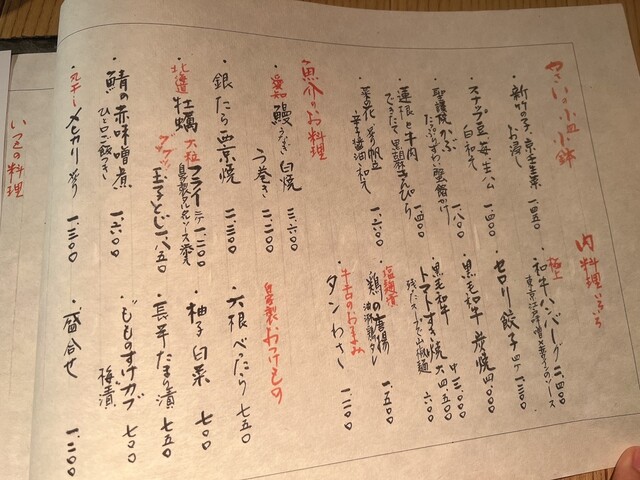 やさいの小皿小鉢
・新竹の子、京壬生菜
お浸し 一、四五〇
・スナップ豆 苺 生ハム
白和え 一、四〇〇
・聖護院かぶ
たっぷりずわい蟹餡かけ 一、八〇〇
・蓮根と牛肉
できたて黒胡麻きんぴら 一、四〇〇
・菜の花 炙り帆立
辛子醤油和え 一、六〇〇
魚介のお料理
・愛知 鰻 うなぎ 白焼 三、六〇〇
う巻き 二、二〇〇
・銀たら西京焼 二、三〇〇
・北海道 牡蠣 大粒 フライ 自家製タルタルソース添え 一、二〇〇
グツグツ 玉子とじ 一、八五〇
・鯖の赤味噌煮
ひと口ご飯つき 一、六〇〇
・丸干しメヒカリ炙り 一、三〇〇
肉料理いろいろ
・極上 和牛ハンバーグ 二、四〇〇
東京江戸味噌と赤ワインのソース
・セロリ餃子 四ケ 一、三〇〇
・黒毛和牛炭焼 四、〇〇〇
・黒毛和牛
トマトすき焼 中 三、〇〇〇 大 四、五〇〇
残ったスープで山椒麺 六〇〇
・塩麹漬 鶏の唐揚 油淋鶏ダレ 一、五〇〇
牛舌のおつまみ
・タンわさ 一、二〇〇
自家製おつけもの
・大根べったら 七五〇
・柚子白菜 七〇〇
・長芋たまり漬 七五〇
・もものすけカブ
梅漬 七〇〇
・盛合せ 一、二〇〇
いつもの料理